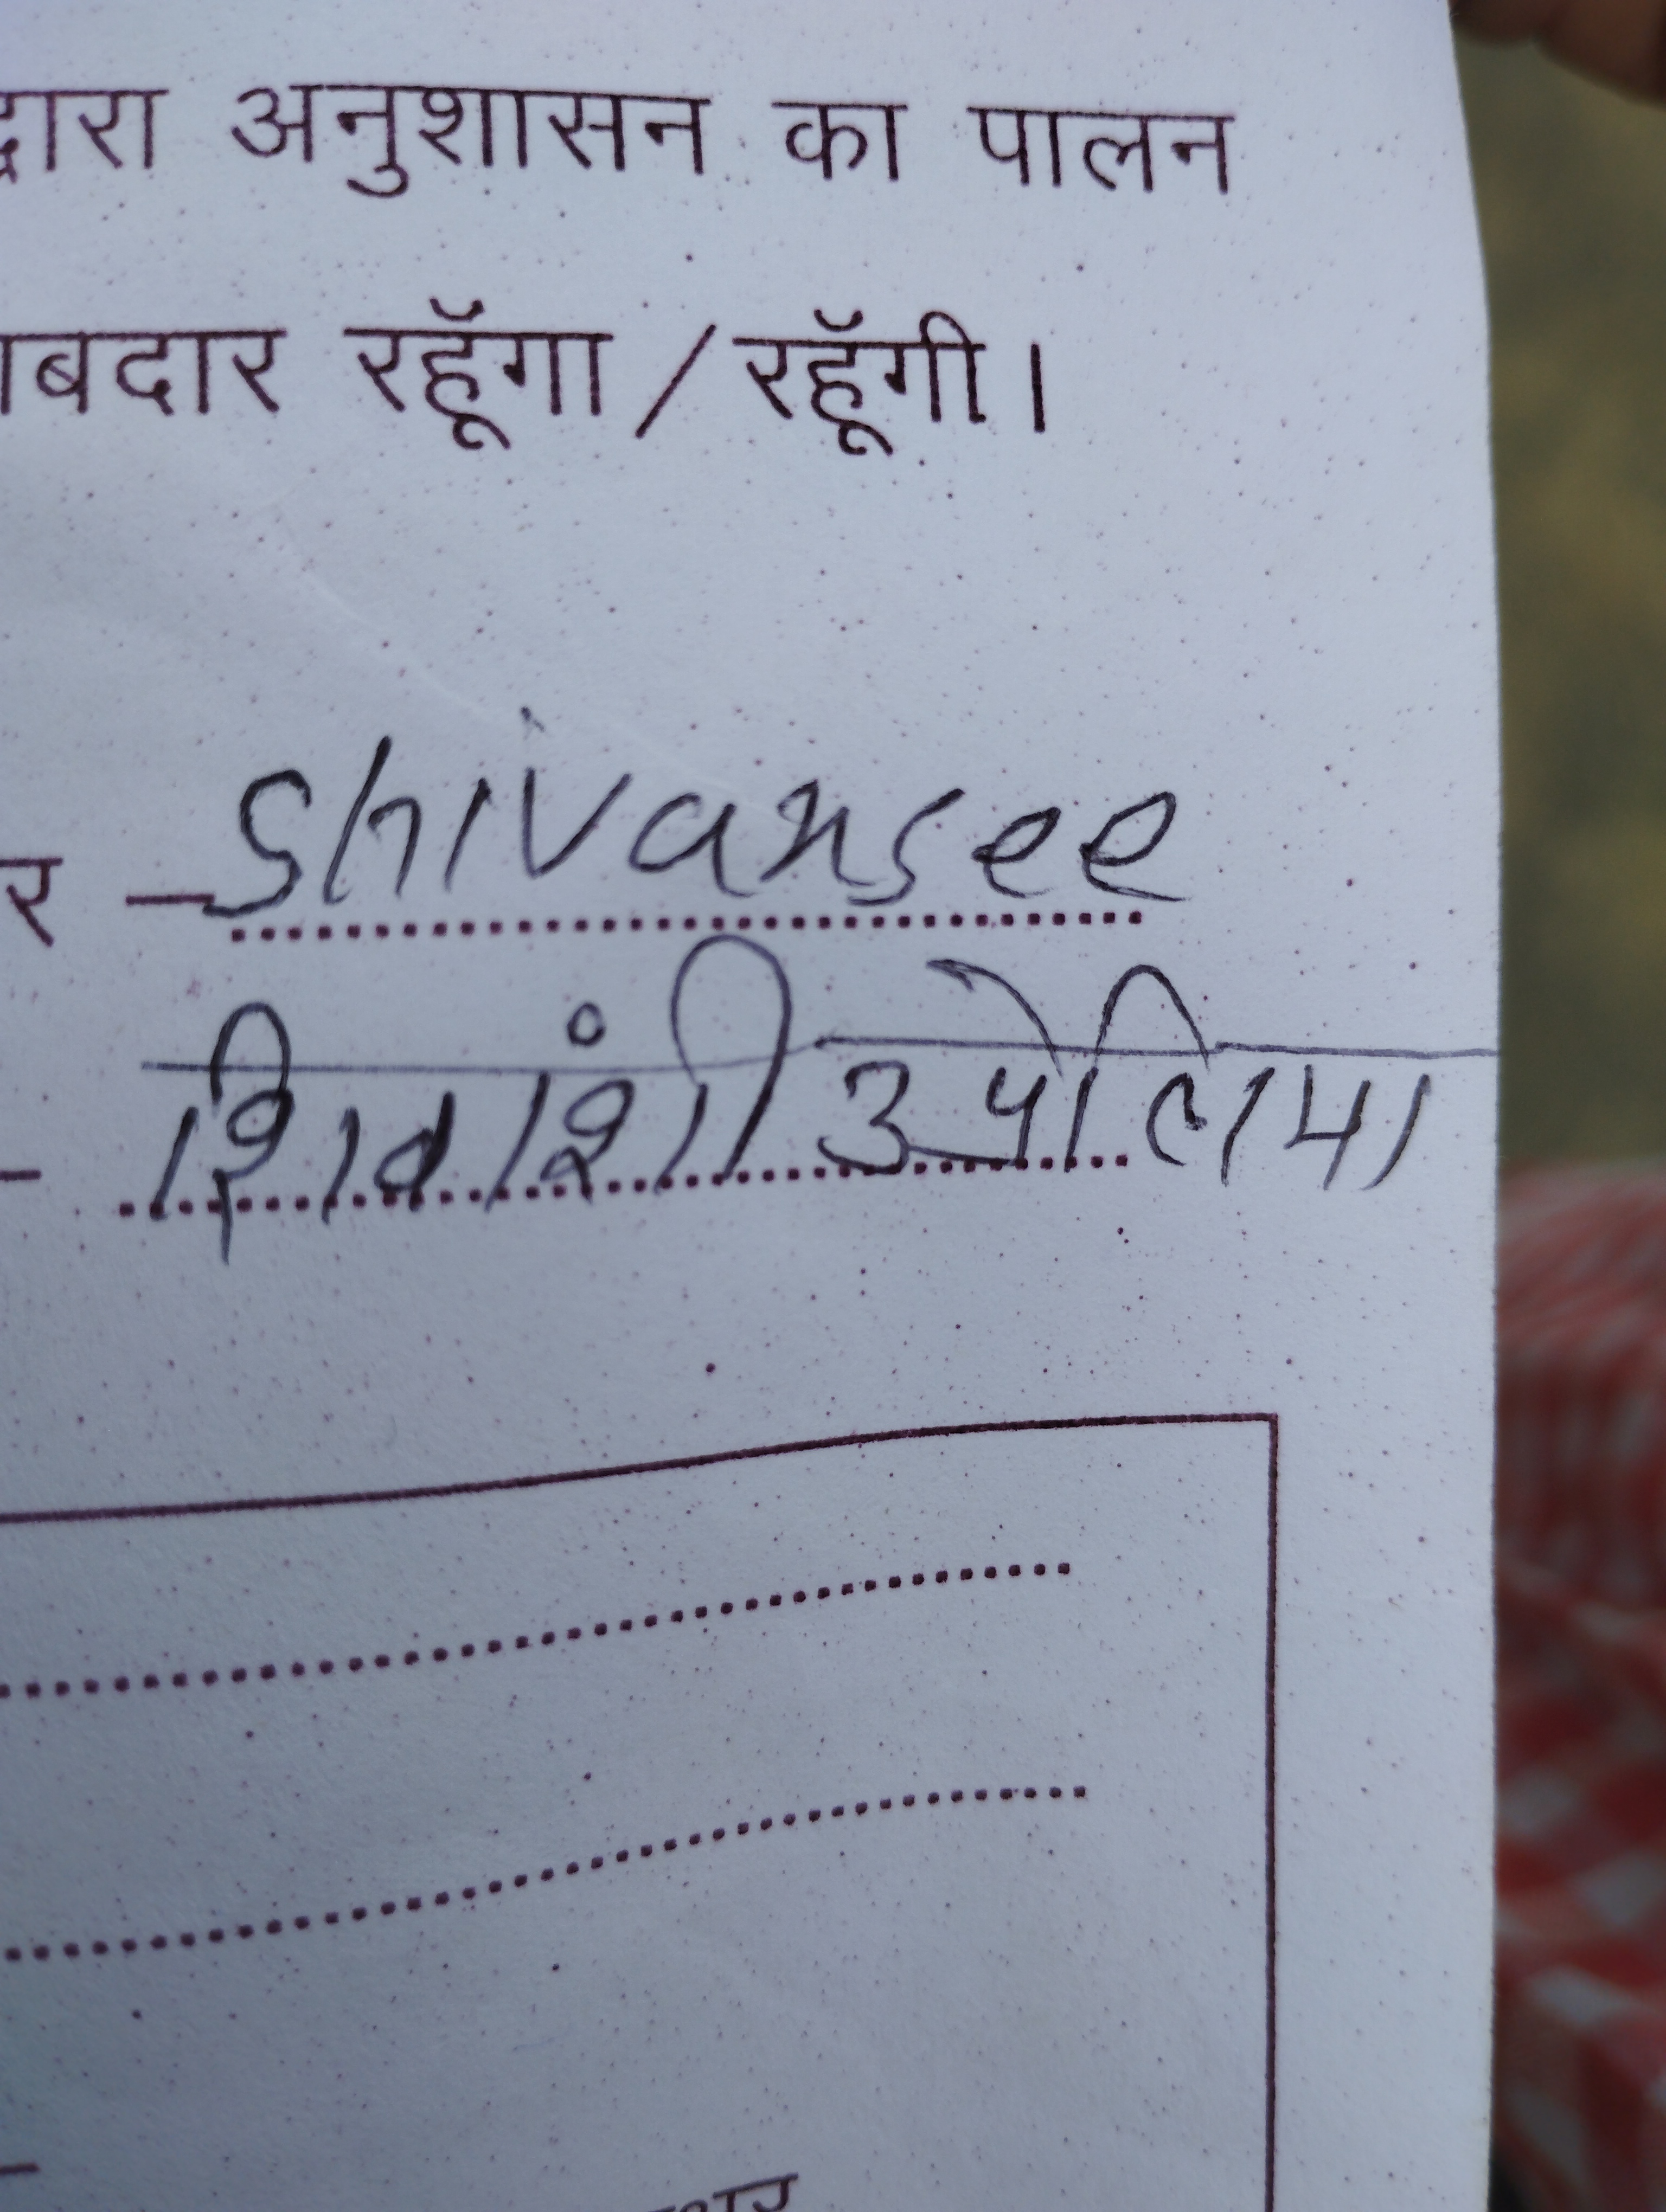 द्वारा अनुशासन का पालन
ाबदार रहूॅंगा / रहूॅंगी।
र – Shivansee
– शिवांशी